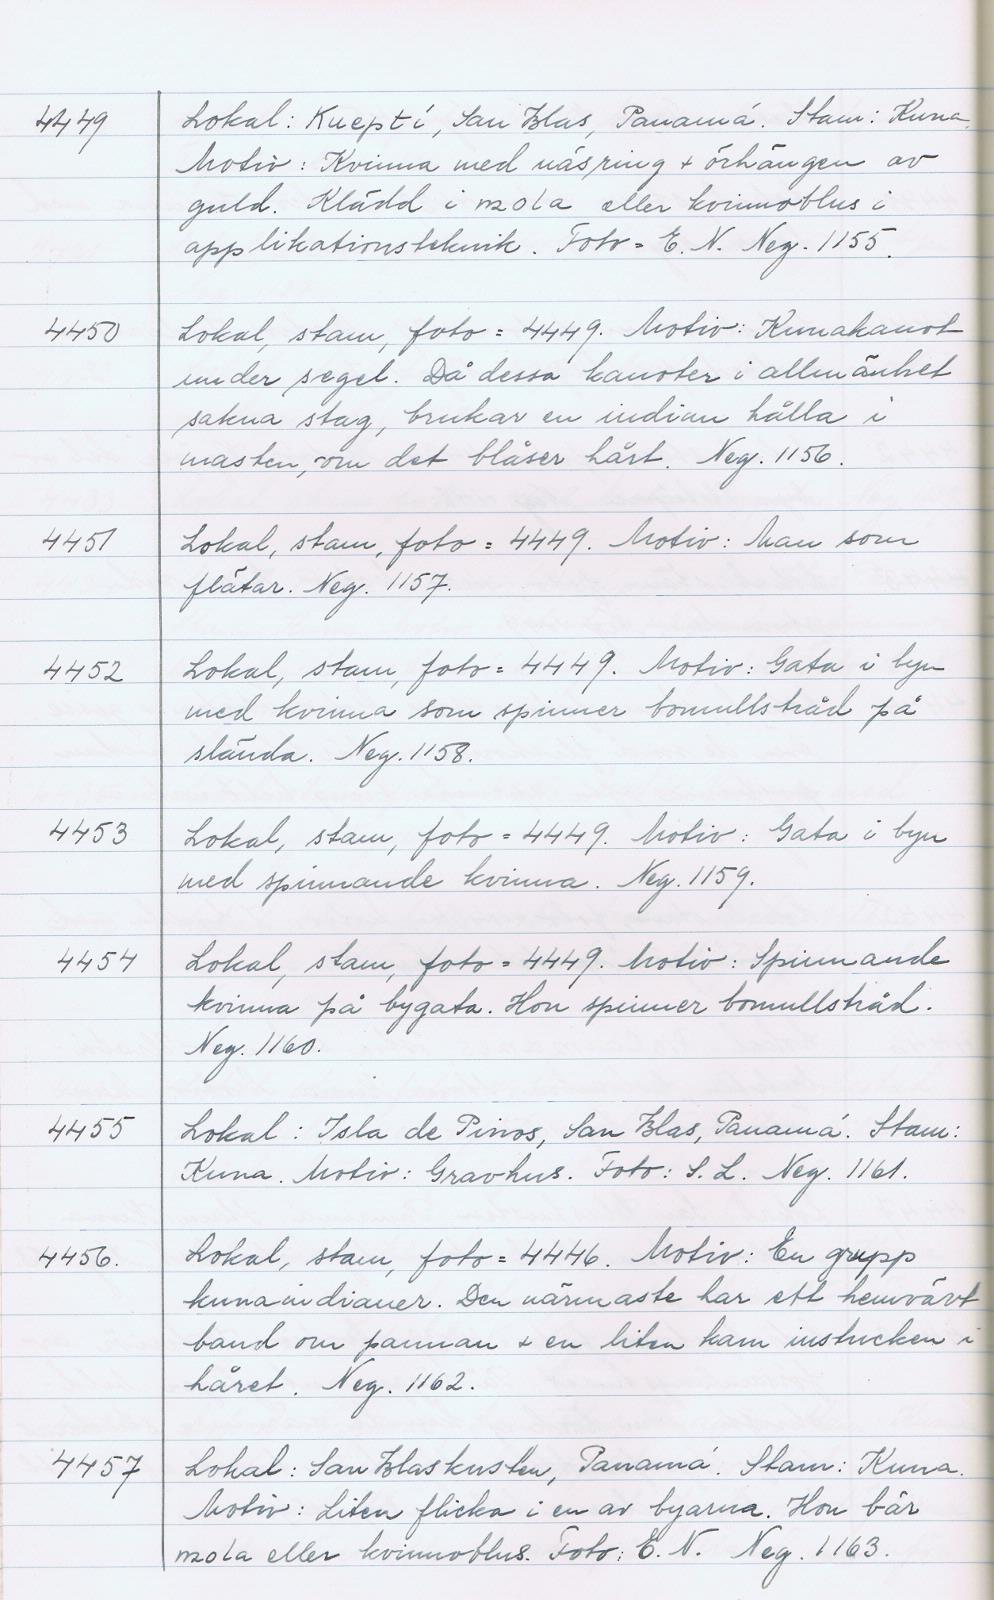 4449 Lokal: Kueptí, San Blas, Panamá. Stam: Kuna.
Motiv: Kvinna med näsring + örhängen av
guld. Klädd i mola eller kvinnoblus i
applikationsteknik. Foto = E. N. Neg. 1155.
4450 Lokal, stam, foto = 4449. Motiv: Kunakanot
under segel. Då dessa kanoter i allmänhet
sakna stag, brukar en indian hålla i
masten, om det blåser hårt. Neg. 1156.
4451 Lokal, stam, foto = 4449. Motiv: Man som
flätar. Neg. 1157.
4452 Lokal, stam, foto = 4449. Motiv: Gata i byn
med kvinna som spinner bomullstråd på
slända. Neg. 1158.
4453 Lokal, stam, foto = 4449. Motiv: Gata i byn
med spinnande kvinna. Neg. 1159.
4454 Lokal, stam, foto = 4449. Motiv: Spinnande
kvinna på bygata. Hon spinner bomullstråd.
Neg. 1160.
4455 Lokal: Isla de Pinos, San Blas, Panamá. Stam:
Kuna. Motiv: Gravhus. Foto: S. L. Neg. 1161.
4456. Lokal, stam, foto = 4446. Motiv: En grupp
kunaindianer. Den närmaste har ett hemvävt
band om pannan + en liten kam instucken i
håret. Neg. 1162.
4457 Lokal: San Blaskusten, Panamá. Stam: Kuna.
Motiv: Liten flicka i en av byarna. Hon bär
mola eller kvinnoblus. Foto: E. N. Neg. 1163.